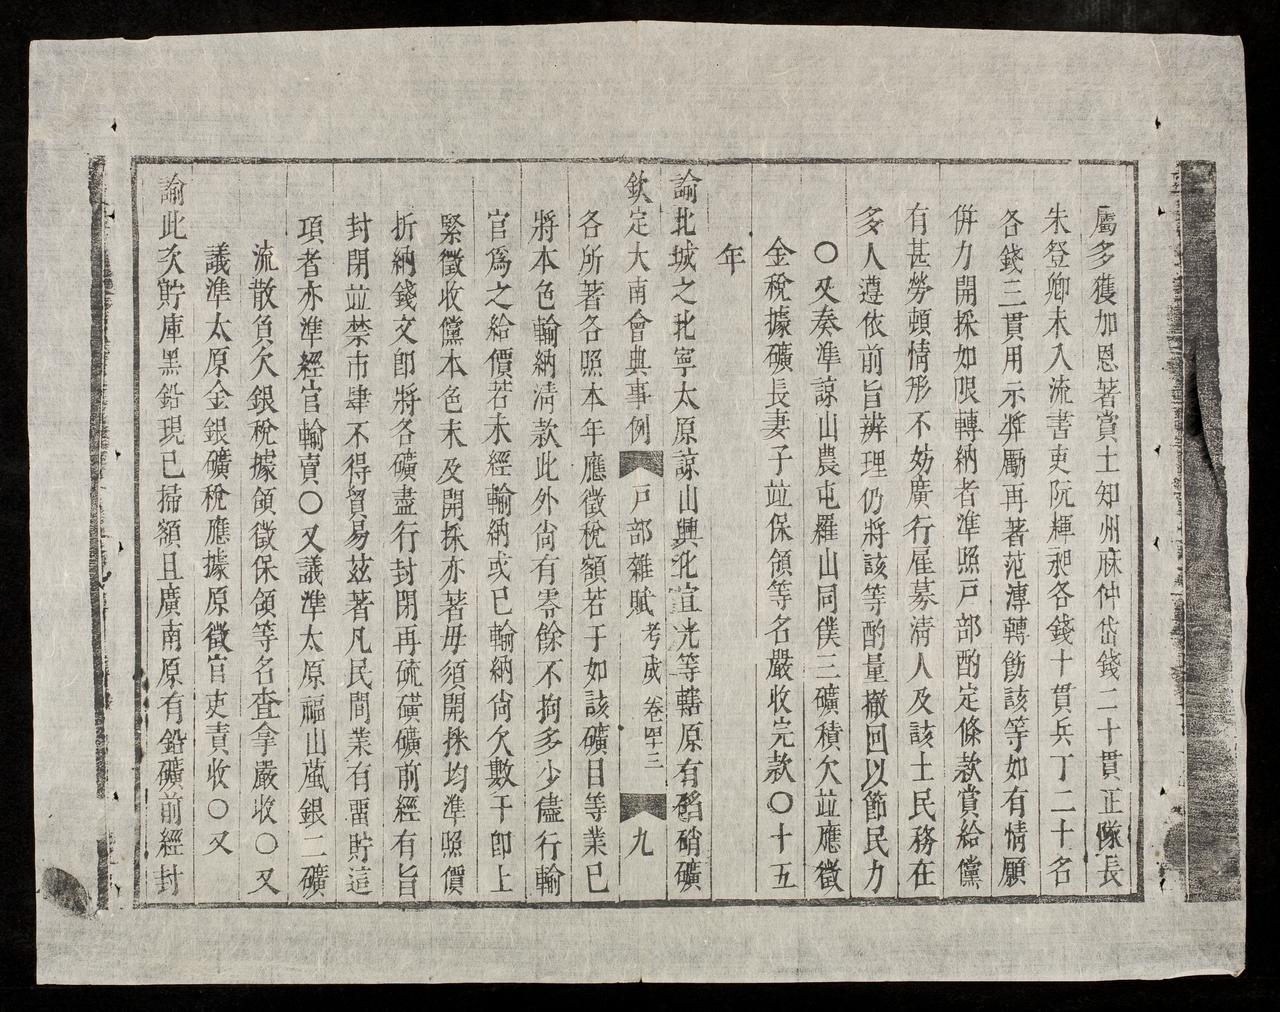 屬多獲加恩著賞土知州麻仲岱錢二十貫正隊長
朱登卿未入流書吏阮輝昶各錢十貫兵丁二十名
各錢三貫用示獎勵再著范漙轉飭該等如有情願
併力開採如限轉納者準照戸部酌定條款賞給儻
有甚勞頓情形不妨廣行雇募淸人及該土民務在
多人遵依前旨辨理仍將該等酌量撤回以節民力
〇又奏準諒山農屯羅山同僕三礦積欠並應徵
金稅據礦長妻子並保領等名嚴收完款〇十五
年
諭北城之北寧太原諒山興化宣光等轄原有硝礦
欽定大南會典事例 戸部雜賦 考成 卷四十三 九
各所著各照本年應徵稅額若干如該礦目等業已
將本色輸納淸款此外尙有零餘不拘多少儘行輸
官爲之給價若未經輸納或已輸納尙欠數干卽上
緊徵收儻本色未及開採亦著毋須開採均準照價
折納錢文卽將各礦盡行封閉再硫磺礦前經有旨
封閉並禁市肆不得貿易玆著凡民間業有畱貯這
項者亦準經官輸賣〇又議準太原福山葻銀二礦
流散負欠銀稅據領徵保領等名查拿嚴收〇又
議準太原金銀礦稅應據原徵官吏責收〇又
諭此次貯庫黑鉛現已掃額且廣南原有鉛礦前經封